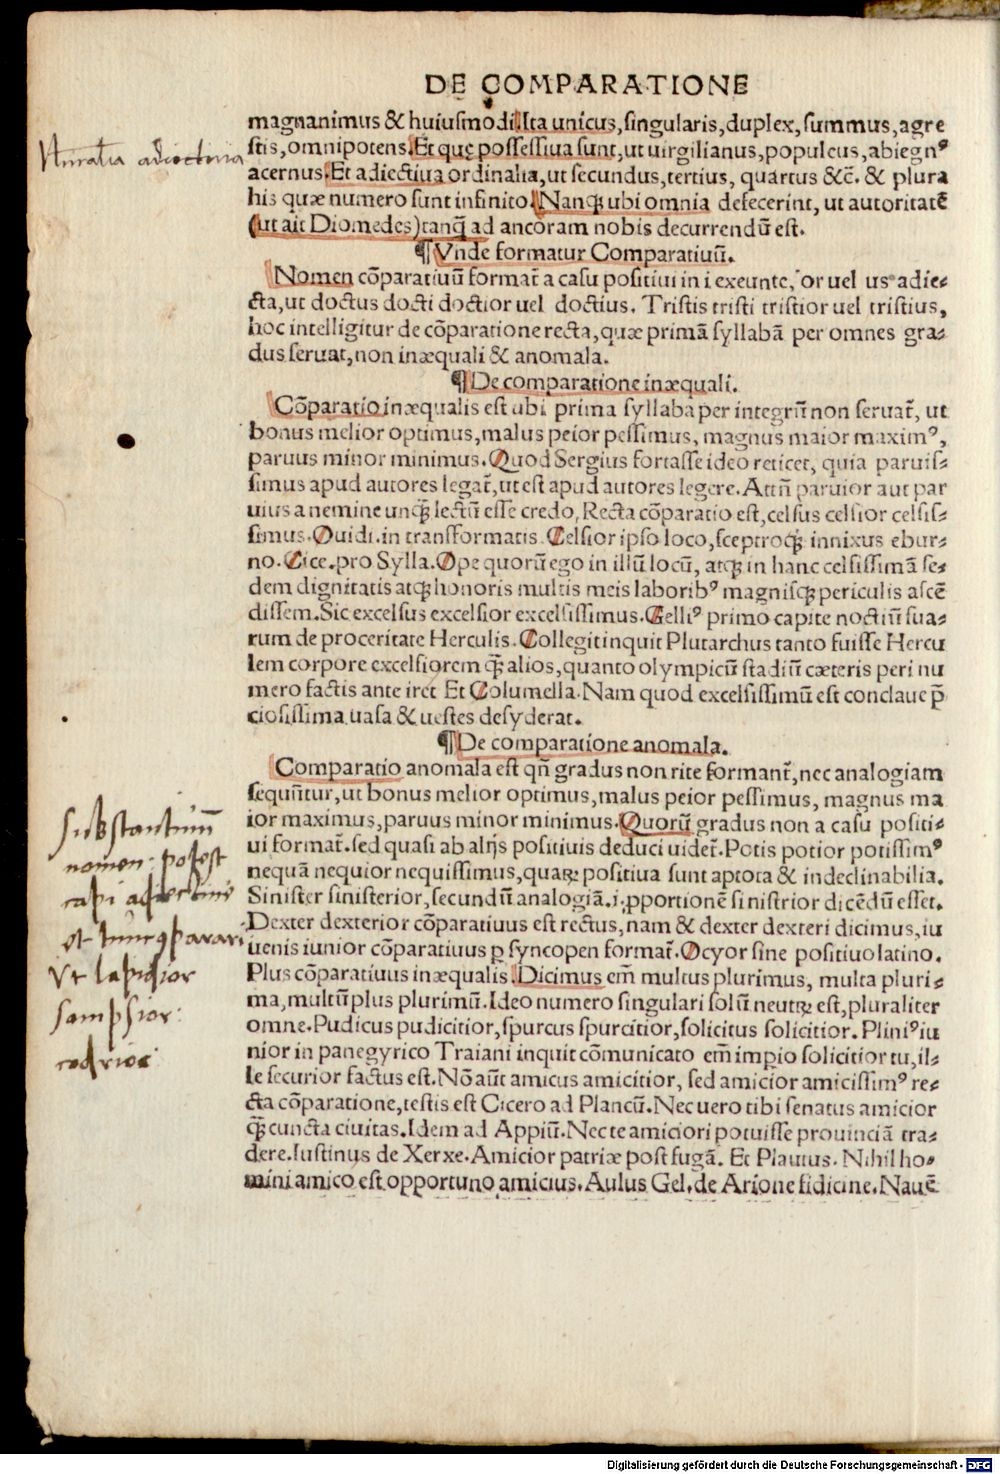 DE COMPARATIONE
magnanimus & huiusmodi. Ita unicus, singularis, duplex, summus, agre
stis, omnipotens. Et quę possessiua sunt, ut uirgilianus, populeus, abiegnꝰ
acernus. Et adiectiua ordinalia, ut secundus, tertius, quartus &c̃. & plura
his quæ numero sunt infinito. Nanqꝫ ubi omnia defecerint, ut autoritatẽ
(ut ait Diomedes) tanq̃ ad ancoram nobis decurrendũ est.
¶ Vnde formatur Comparatiuũ.
Nomen cõparatiuũ format̃ a casu positiui in i exeunte, or uel us adie-
cta, ut doctus docti doctior uel doctius. Tristis tristi tristior uel tristius,
hoc intelligitur de cõparatione recta, quæ primã syllabã per omnes gra-
dus seruat, non inæquali & anomala.
¶ De comparatione inæquali.
Cõparatio inæqualis est ubi prima syllaba per integrũ non seruat̃, ut
bonus melior optimus, malus peior pessimus, magnus maior maximꝰ,
paruus minor minimus. Quod Sergius fortasse ideo reticet, quia paruis-
simus apud autores legat̃, ut est apud autores legere. Attñ paruior aut par
uius a nemine unqꝫ̃ lectũ esse credo, Recta cõparatio est, celsus celsior celsis-
simus. Ouidi. in transformatis. Celsior ipso loco, sceptroqꝫ innixus ebur-
no. Cice. pro Sylla. Ope quorũ ego in illũ locũ, atqꝫ in hanc celsissimã se-
dem dignitatis atqꝫ honoris multis meis laboribꝰ magnisqꝫ periculis ascẽ
dissem. Sic excelsus excelsior excelsissimus. Gelliꝰ primo capite noctiũ sua-
rum de proceritate Herculis. Collegit inquit Plutarchus tanto fuisse Hercu
lem corpore excelsiorem qꝫ̃ alios, quanto olympicũ stadiũ cæteris peri nu
mero factis ante iret Et Columella. Nam quod excelsissimũ est conclaue p̃
ciosissima uasa & uestes desyderat.
¶ De comparatione anomala.
Comparatio anomala est qñ gradus non rite formant̃, nec analogiam
sequũtur, ut bonus melior optimus, malus peior pessimus, magnus ma
ior maximus, paruus minor minimus. Quorũ gradus non a casu positi-
ui format̃. sed quasi ab alijs positiuis deduci uidet̃. Potis potior potissimꝰ
nequã nequior nequissimus, quaꝝ positiua sunt aptota & indeclinabilia.
Sinister sinisterior, secundũ analogiã. i. ꝓportionẽ sinistrior dicẽdũ esset.
Dexter dexterior cõparatiuus est rectus, nam & dexter dexteri dicimus, iu
uenis iunior cõparatiuus ꝑ syncopen format̃. Ocyor sine positiuo latino.
Plus cõparatiuus inæqualis. Dicimus em̃ multus plurimus, multa pluri-
ma, multũ plus plurimũ. Ideo numero singulari solũ neutrꝝ est, pluraliter
omne. Pudicus pudicitior, spurcus spurcitior, solicitus solicitior. Pliniꝰ iu
nior in panegyrico Traiani inquit cõmunicato em̃ impio solicitior tu, il-
le securior factus est. Nõ aũt amicus amicitior, sed amicior amicissimꝰ re-
cta cõparatione, testis est Cicero ad Plancũ. Nec uero tibi senatus amicior
qꝫ̃ cuncta ciuitas. Idem ad Appiũ. Nec te amiciori potuisse prouinciã tra-
dere. Iustinus de Xerxe. Amicior patriæ post fugã. Et Plautus. Nihil ho-
mini amico est opportuno amicius. Aulus Gel. de Arione fidicine. Nauẽ
Numeralia adiectiua
Substantiuũ
nomen potest
capi adiectiue
et tunc ꝯparari
Vt lapidior
sampsior:
codrior
Digitalisierung gefördert durch die Deutsche Forschungsgemeinschaft - DFG